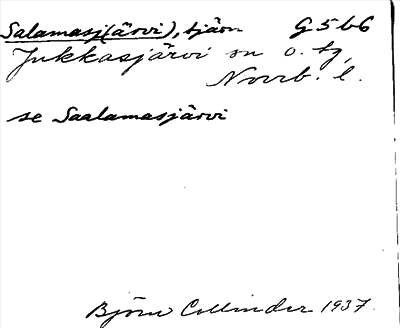 Salamasj(ärvi), tjärn G5b6
Jukkasjärvi sn o. tg,
Norrb. l.
se Saalamasjärvi
Björn Collinder 1937.